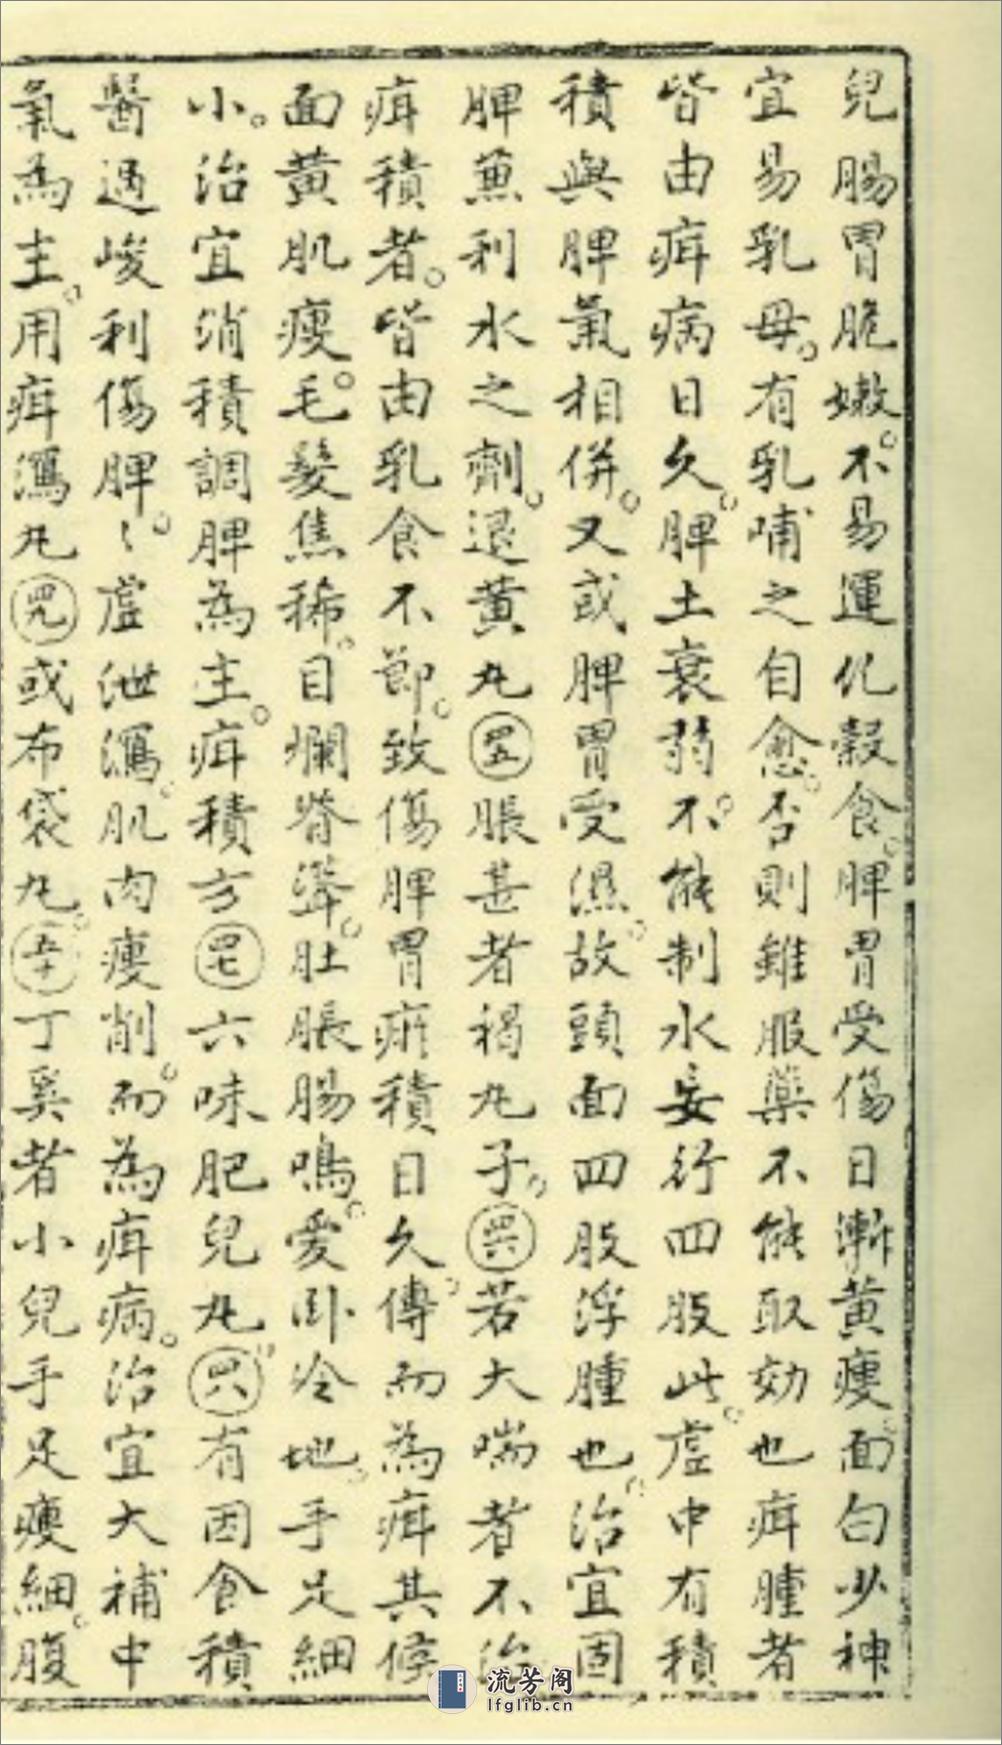 兒腸胃脆嫩。不易運化穀食。脾胃受傷日漸黃瘦。面白少神
宜易乳母。有乳哺之自愈。否則雖服藥不能取効也疳腫者
皆由疳病日久。脾土衰弱。不能制水妄行四肢此。虛中有積
積與脾氣相併。又或脾胃受濕。故頭面四肢浮腫也。治宜固
脾兼利水之劑。退黃丸㊺脹甚者褐丸子。㊻若大喘者不治
疳積者。皆由乳食不節。致傷脾胃疳積日久傳。而為疳其候
面黃肌瘦。毛髮焦稀。目爛脊聳。肚脹腸鳴。愛卧冷地。手足細
小。治宜消積調脾為主。疳積方㊼六味肥兒丸。㊽有因食積
醫過峻利傷脾。〻虛泄瀉。肌肉瘦削。而為疳病。治宜大補中
氣為主。用疳瀉丸㊾或布袋丸。㊿丁奚者小兒手足瘦細。腹
流芳阁
lfglib.cn